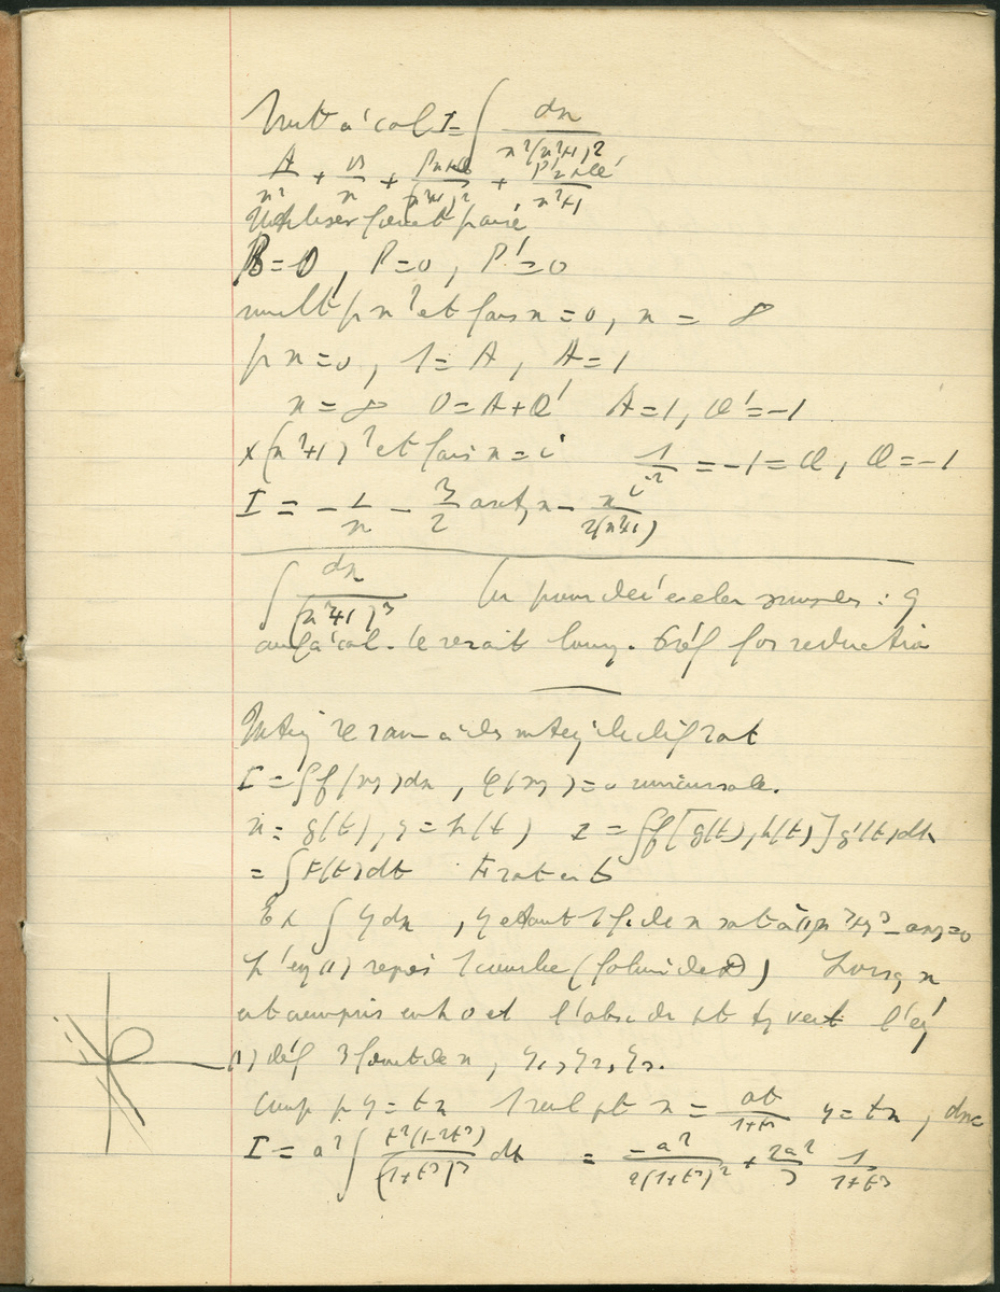 à cal I = ∫ dx / x²(x²+1)²
A/x² + B/x + (Px+Q)/(x²+1)² + (P'x+Q')/(x²+1)
Utiliser fonct paire
B=0, P=0, P'=0
mult p x² et fais x=0, x = ∞
p x=0, 1=A, A=1
x=∞ 0=A+Q' A=1, Q'=-1
x(x²+1)² et fais x=i 1/i² = -1 = Q, Q=-1
I = - 1/x - 3/2 arctg x - x/2(x²+1)
∫ dx/(x²+1)³ simples : q
cal. ce serait long. préf for reductio
Integ se ram à des integ de dif rat
I = ∫f(xy)dx, φ(xy)=0 unicursale.
x = g(t), y = h(t) I = ∫f[g(t), h(t)]g'(t)dt
= ∫F(t)dt F rat en t
Ex ∫ y dx, y étant 1 f. de x sat à (1) x³+y³-axy=0
L'eq (1) repré 1 courbe (folium de D) Lorsq x
est compris entr 0 et l'absc du pt tg vert l'éq
(1) déf 3 fonct de x, y₁, y₂, y₃.
Coup p y=tx 1 seul pt x = at/(1+t³) y=tx, donc
I = a² ∫ t²(1-2t³)/(1+t³)³ dt = -a²/2(1+t³)² + 2a²/3 1/(1+t³)